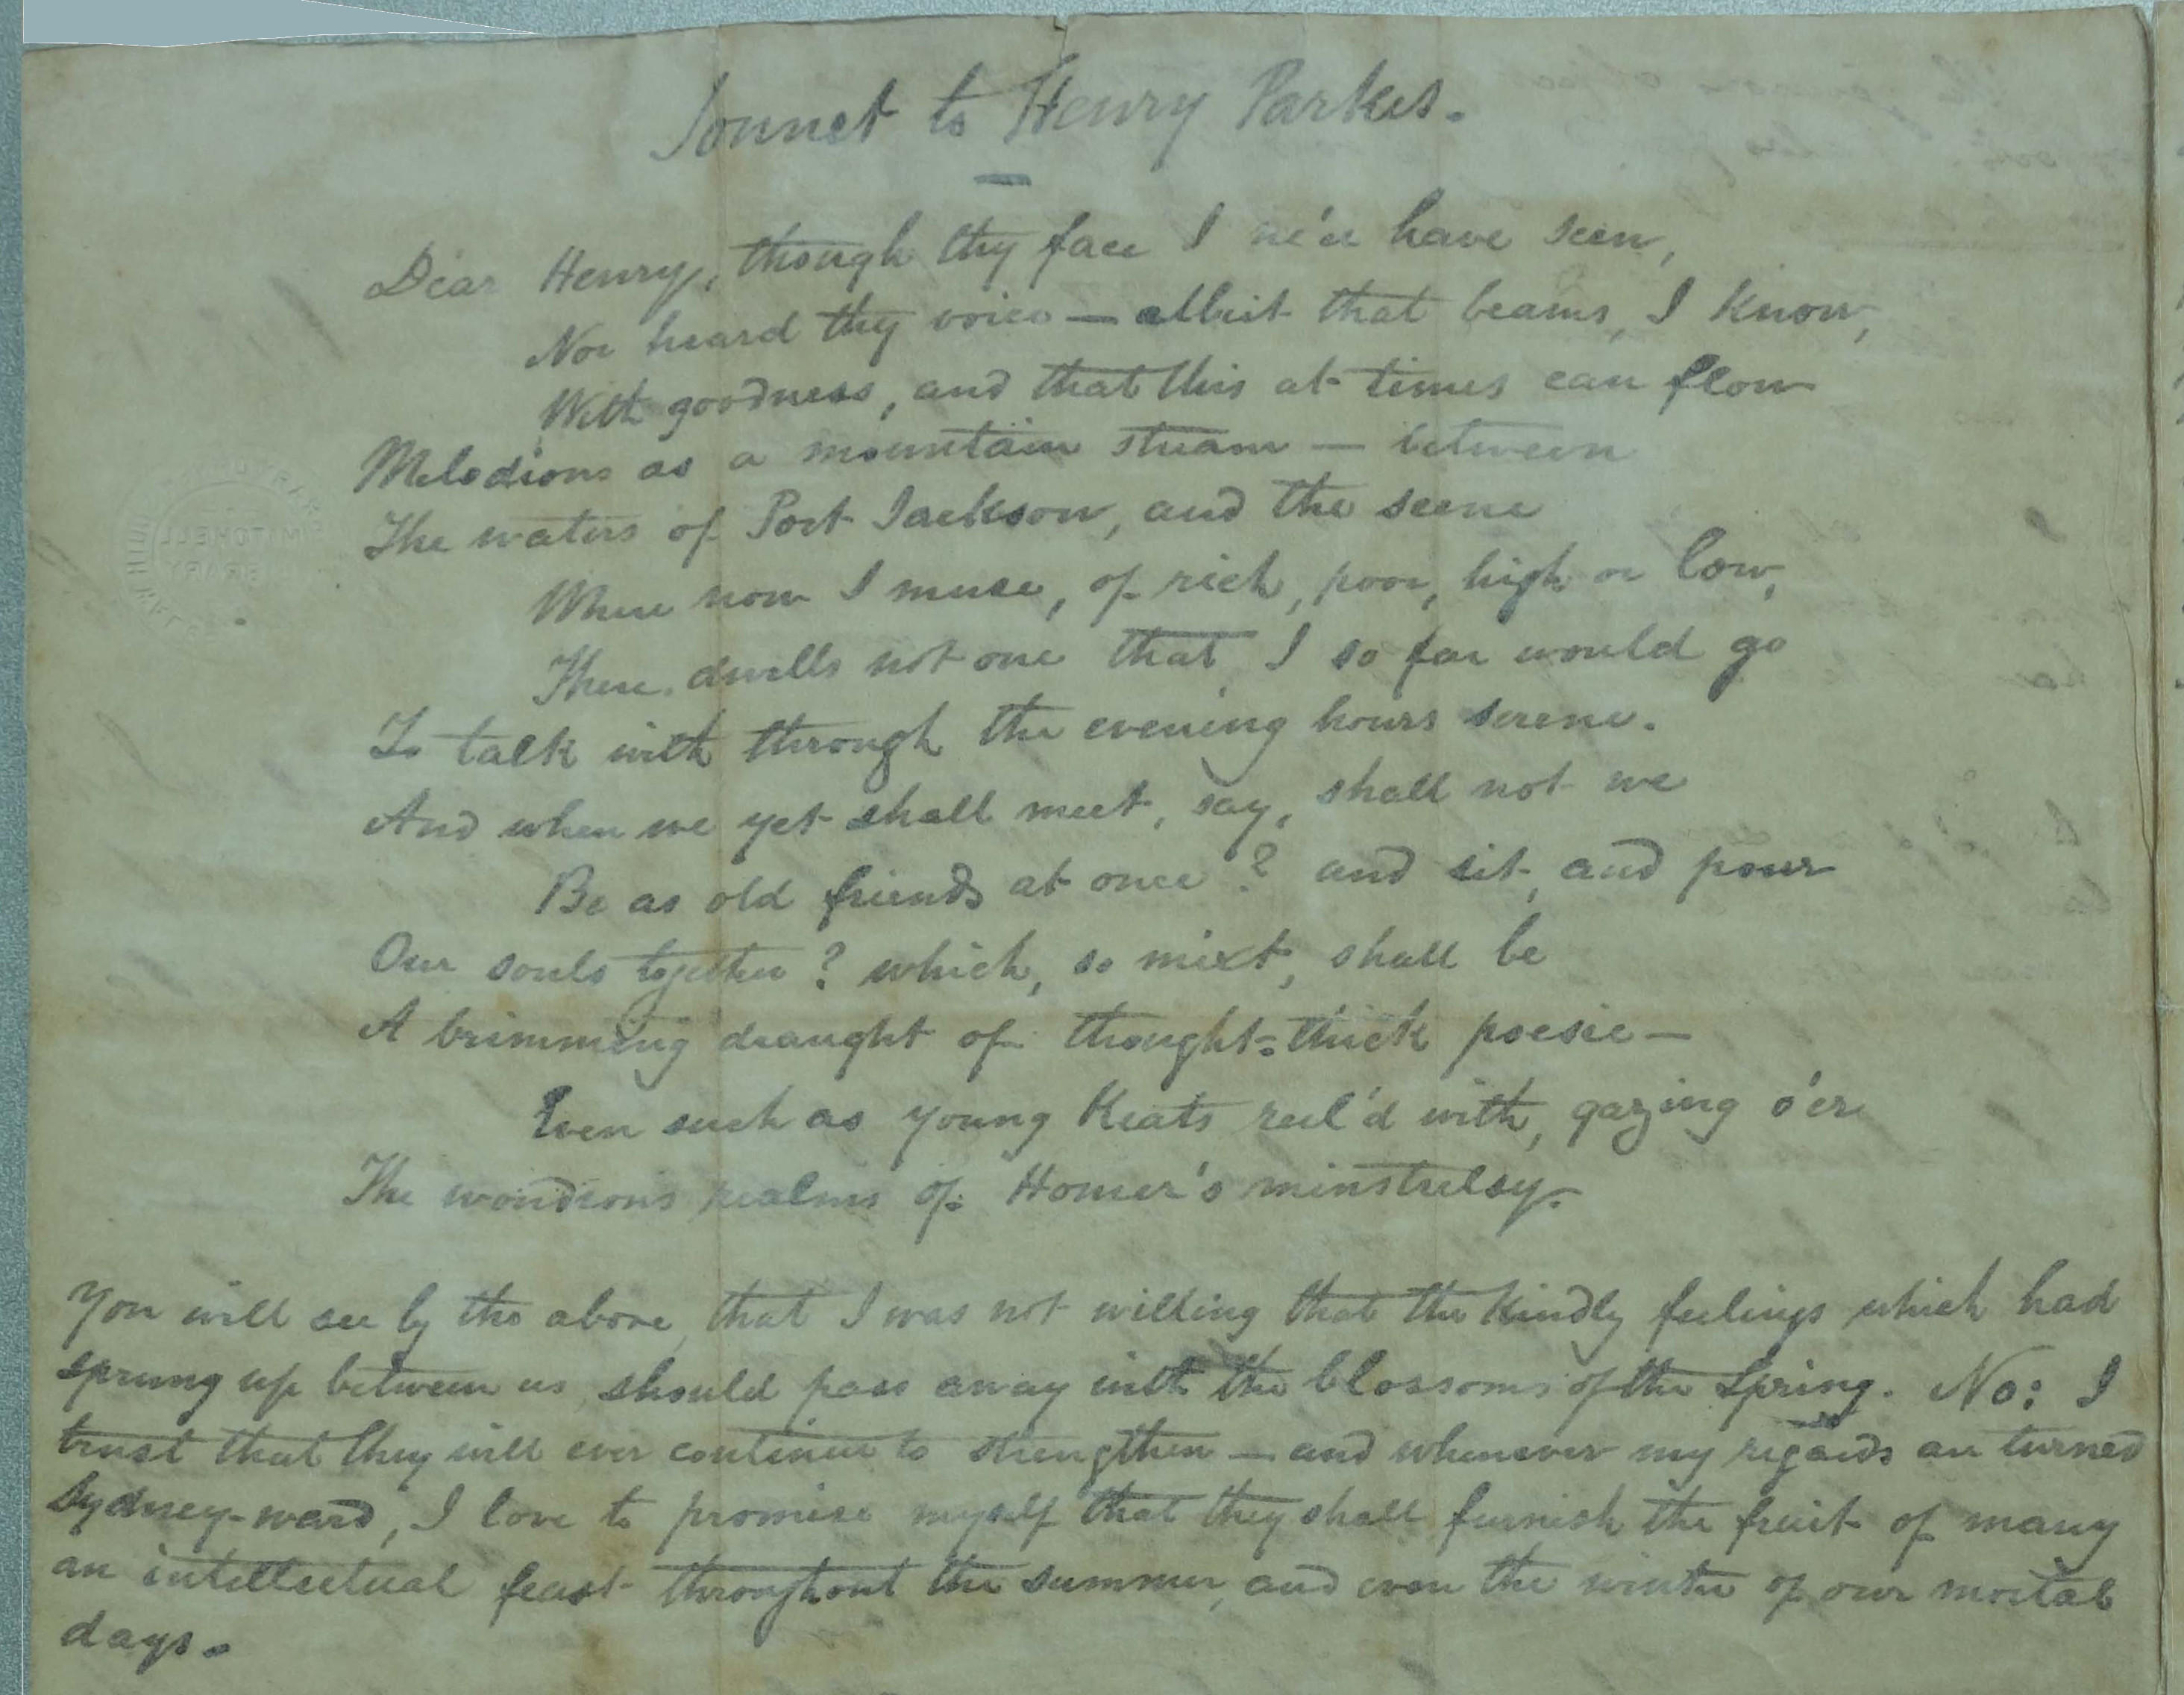 Sonnet to Henry Parkes.
Dear Henry, though thy face I ne'er have seen,
Nor heard thy voice — albeit that beams, I know,
With goodness, and that this at times can flow
Melodious as a mountain stream — between
The waters of Port Jackson, and the scene
Where now I muse, of rich, poor, high or low,
There dwells not one that I so far would go
To talk with through the evening hours serene.
And when we yet shall meet, say, shall not we
Be as old friends at once? and sit, and pour
Our souls together? which, so mixt, shall be
A brimming draught of thought-thick poesie —
Even such as young Keats reel'd with, gazing o'er
The wondrous realms of Homer's minstrelsy.
You will see by the above, that I was not willing that the kindly feelings which had
sprung up between us, should pass away with the blossoms of the Spring. No: I
trust that they will ever continue to strengthen — and whenever my regards are turned
Sydney-ward, I love to promise myself that they shall furnish the fruit of many
an intellectual feast throughout the summer, and even the winter of our mortal
days.